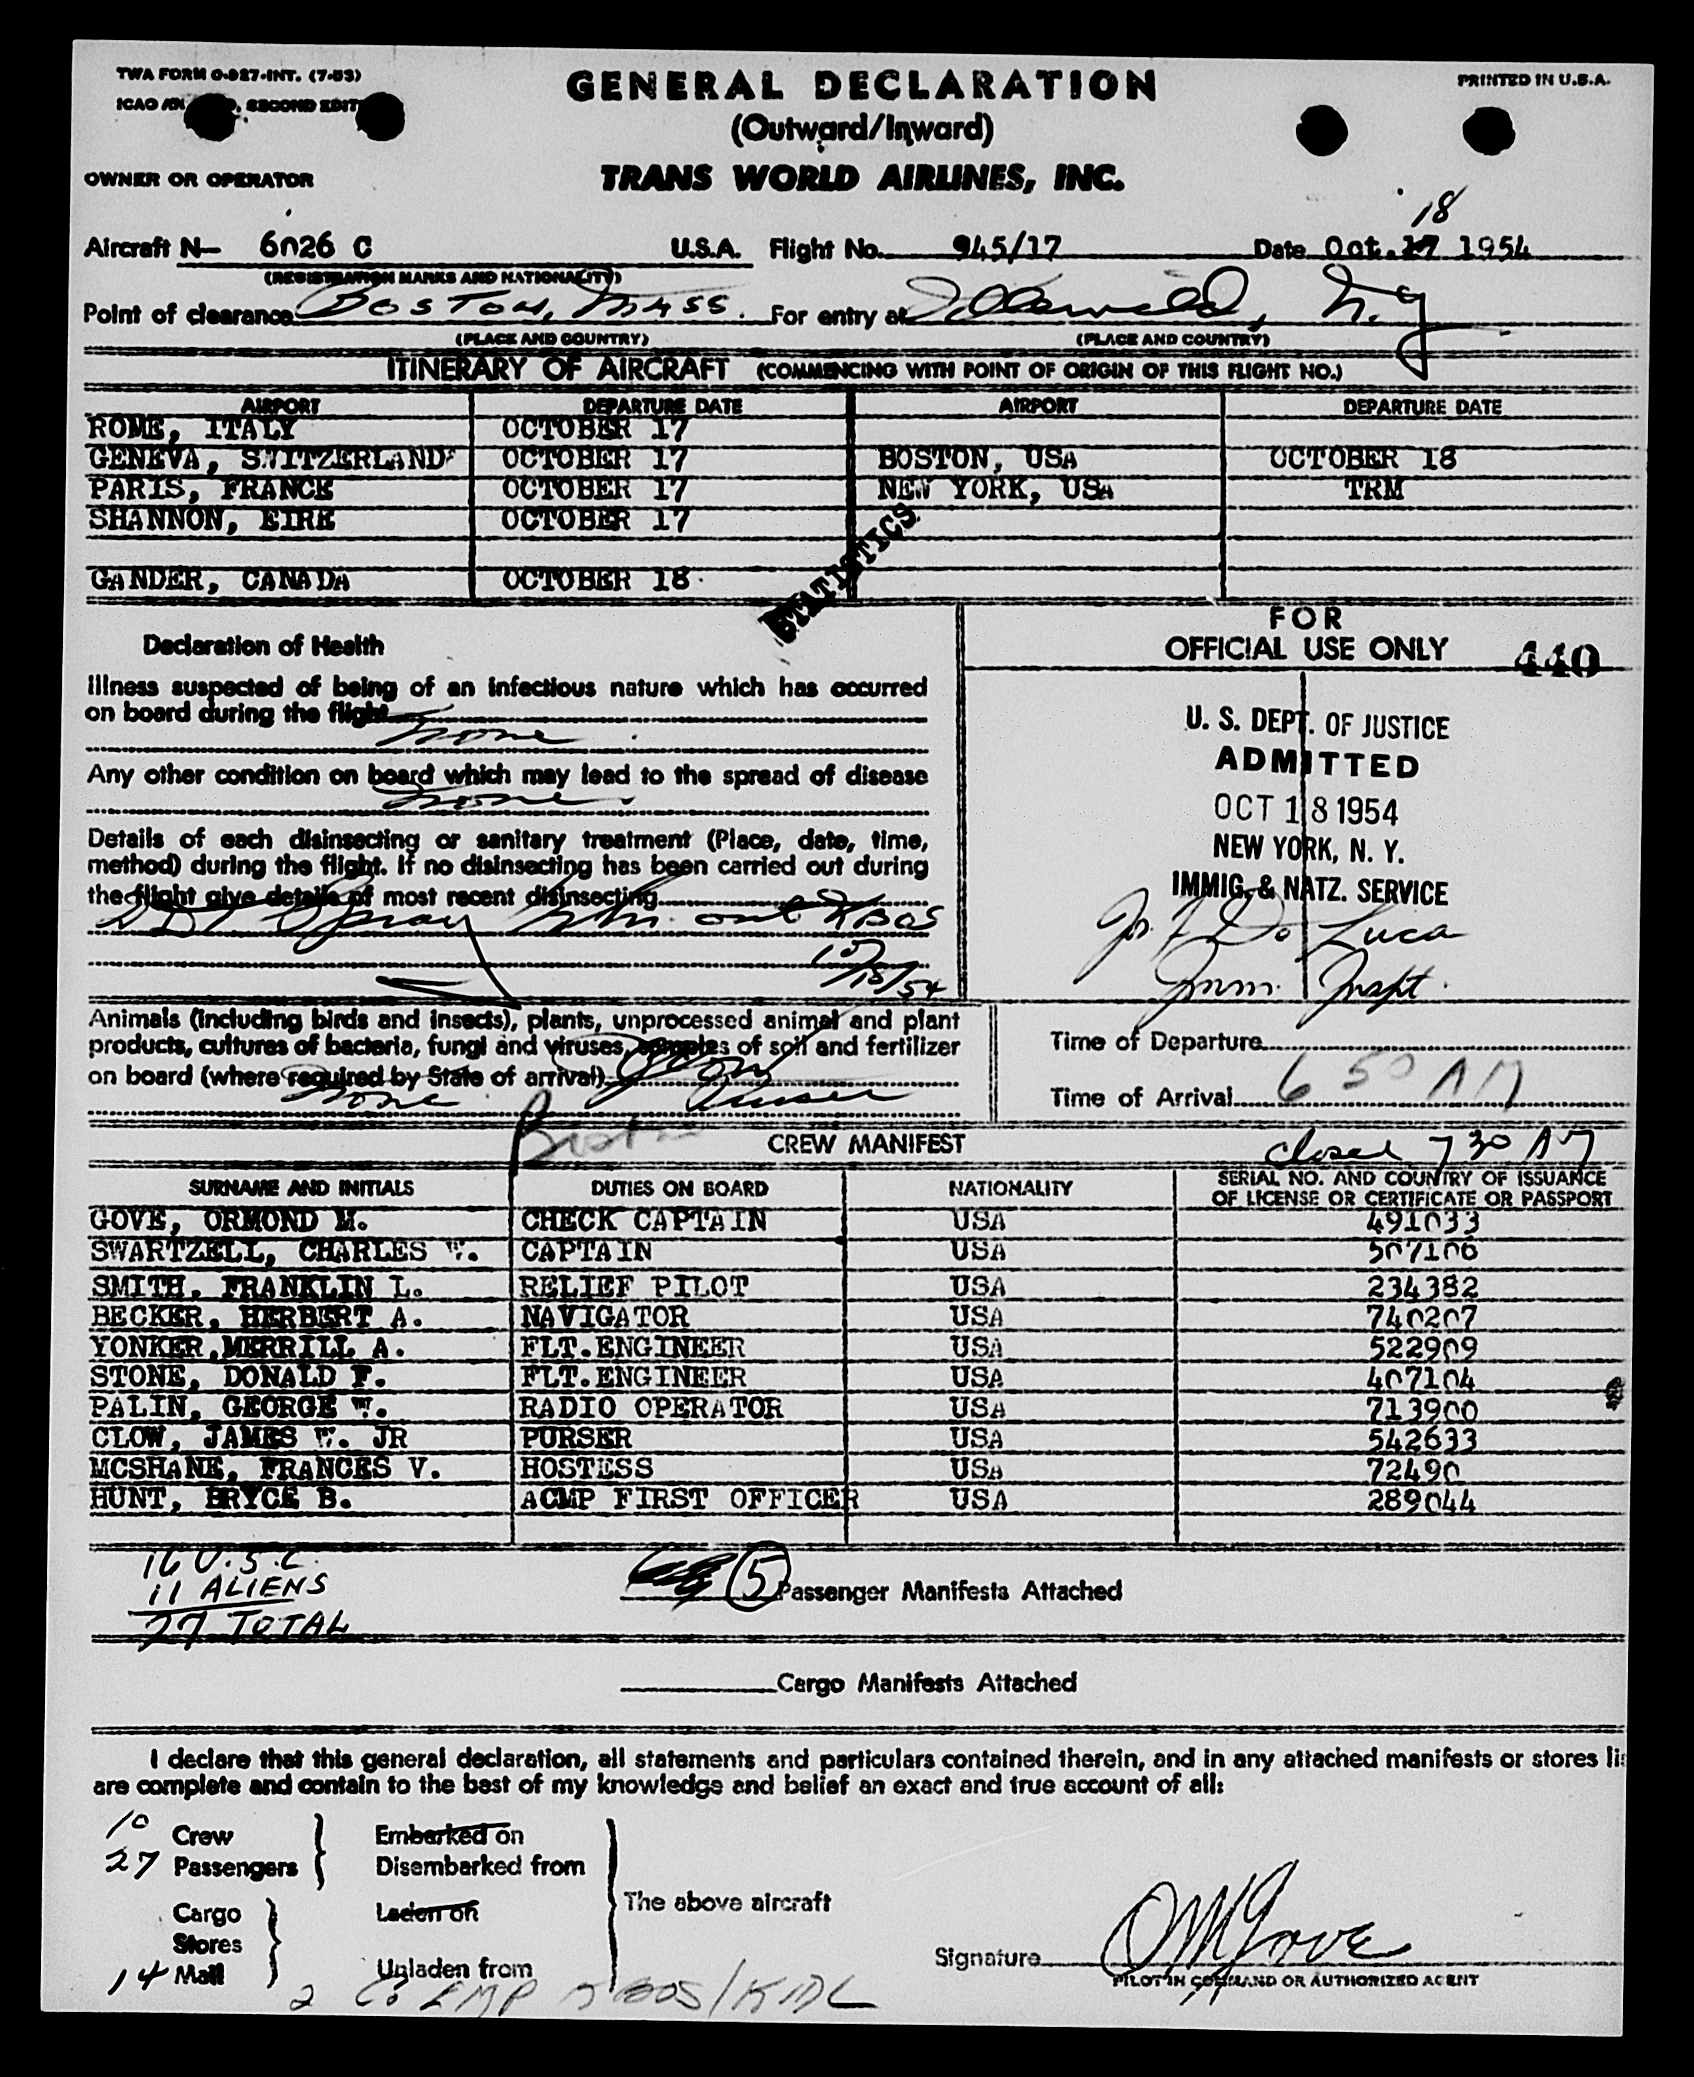 TWA FORM O-927-INT. (7-53)
PRINTED IN U.S.A.
ICAO SECOND EDIT
GENERAL DECLARATION
(Outward/Inward)
OWNER OR OPERATOR
TRANS WORLD AIRLINES, INC.
18
Aircraft N- 6026 C U.S.A. Flight No. 945/17 Date Oct. 17 1954
(REGISTRATION MARKS AND NATIONALITY)
Point of clearance Boston, Mass. For entry at Idlewild, N.Y
(PLACE AND COUNTRY) (PLACE AND COUNTRY)
ITINERARY OF AIRCRAFT (COMMENCING WITH POINT OF ORIGIN OF THIS FLIGHT NO.)
AIRPORT DEPARTURE DATE AIRPORT DEPARTURE DATE
ROME, ITALY OCTOBER 17
GENEVA, SWITZERLAND OCTOBER 17 BOSTON, USA OCTOBER 18
PARIS, FRANCE OCTOBER 17 NEW YORK, USA TRM
SHANNON, EIRE OCTOBER 17
GANDER, CANADA OCTOBER 18
STATISTICS
FOR
OFFICIAL USE ONLY 440
Declaration of Health
Illness suspected of being of an infectious nature which has occurred
on board during the flight
None
Any other condition on board which may lead to the spread of disease
None
Details of each disinsecting or sanitary treatment (Place, date, time,
method) during the flight. If no disinsecting has been carried out during
the flight give details of most recent disinsecting
DDT Spray out KBOS
10/18/54
U. S. DEPT. OF JUSTICE
ADMITTED
OCT 18 1954
NEW YORK, N. Y.
IMMIG. & NATZ. SERVICE
De Luca
Imm. Inspt.
Animals (including birds and insects), plants, unprocessed animal and plant
products, cultures of bacteria, fungi and viruses, samples of soil and fertilizer
on board (where required by State of arrival)
None Purser
Time of Departure
Time of Arrival 6 50 AM
Boston
CREW MANIFEST
closed 7 30 AM
SURNAME AND INITIALS DUTIES ON BOARD NATIONALITY SERIAL NO. AND COUNTRY OF ISSUANCE
OF LICENSE OR CERTIFICATE OR PASSPORT
GOVE, ORMOND M. CHECK CAPTAIN USA 491033
SWARTZELL, CHARLES W. CAPTAIN USA 507106
SMITH, FRANKLIN L. RELIEF PILOT USA 234382
BECKER, HERBERT A. NAVIGATOR USA 740207
YONKER,MERRILL A. FLT.ENGINEER USA 522909
STONE, DONALD F. FLT.ENGINEER USA 407104
PALIN, GEORGE W. RADIO OPERATOR USA 713900
CLOW, JAMES W. JR PURSER USA 542633
MCSHANE, FRANCES V. HOSTESS USA 72490
HUNT, BRYCE B. ACMP FIRST OFFICER USA 289044
16 U.S.C.
11 ALIENS
27 TOTAL
5 Passenger Manifests Attached
Cargo Manifests Attached
I declare that this general declaration, all statements and particulars contained therein, and in any attached manifests or stores lis
are complete and contain to the best of my knowledge and belief an exact and true account of all:
10 Crew Embarked on
27 Passengers Disembarked from
Cargo Laden on
The above aircraft
Stores
14 Mail Unladen from
Signature OM Gove
PILOT IN COMMAND OR AUTHORIZED AGENT
2 Co EMP KBOS/KIDL